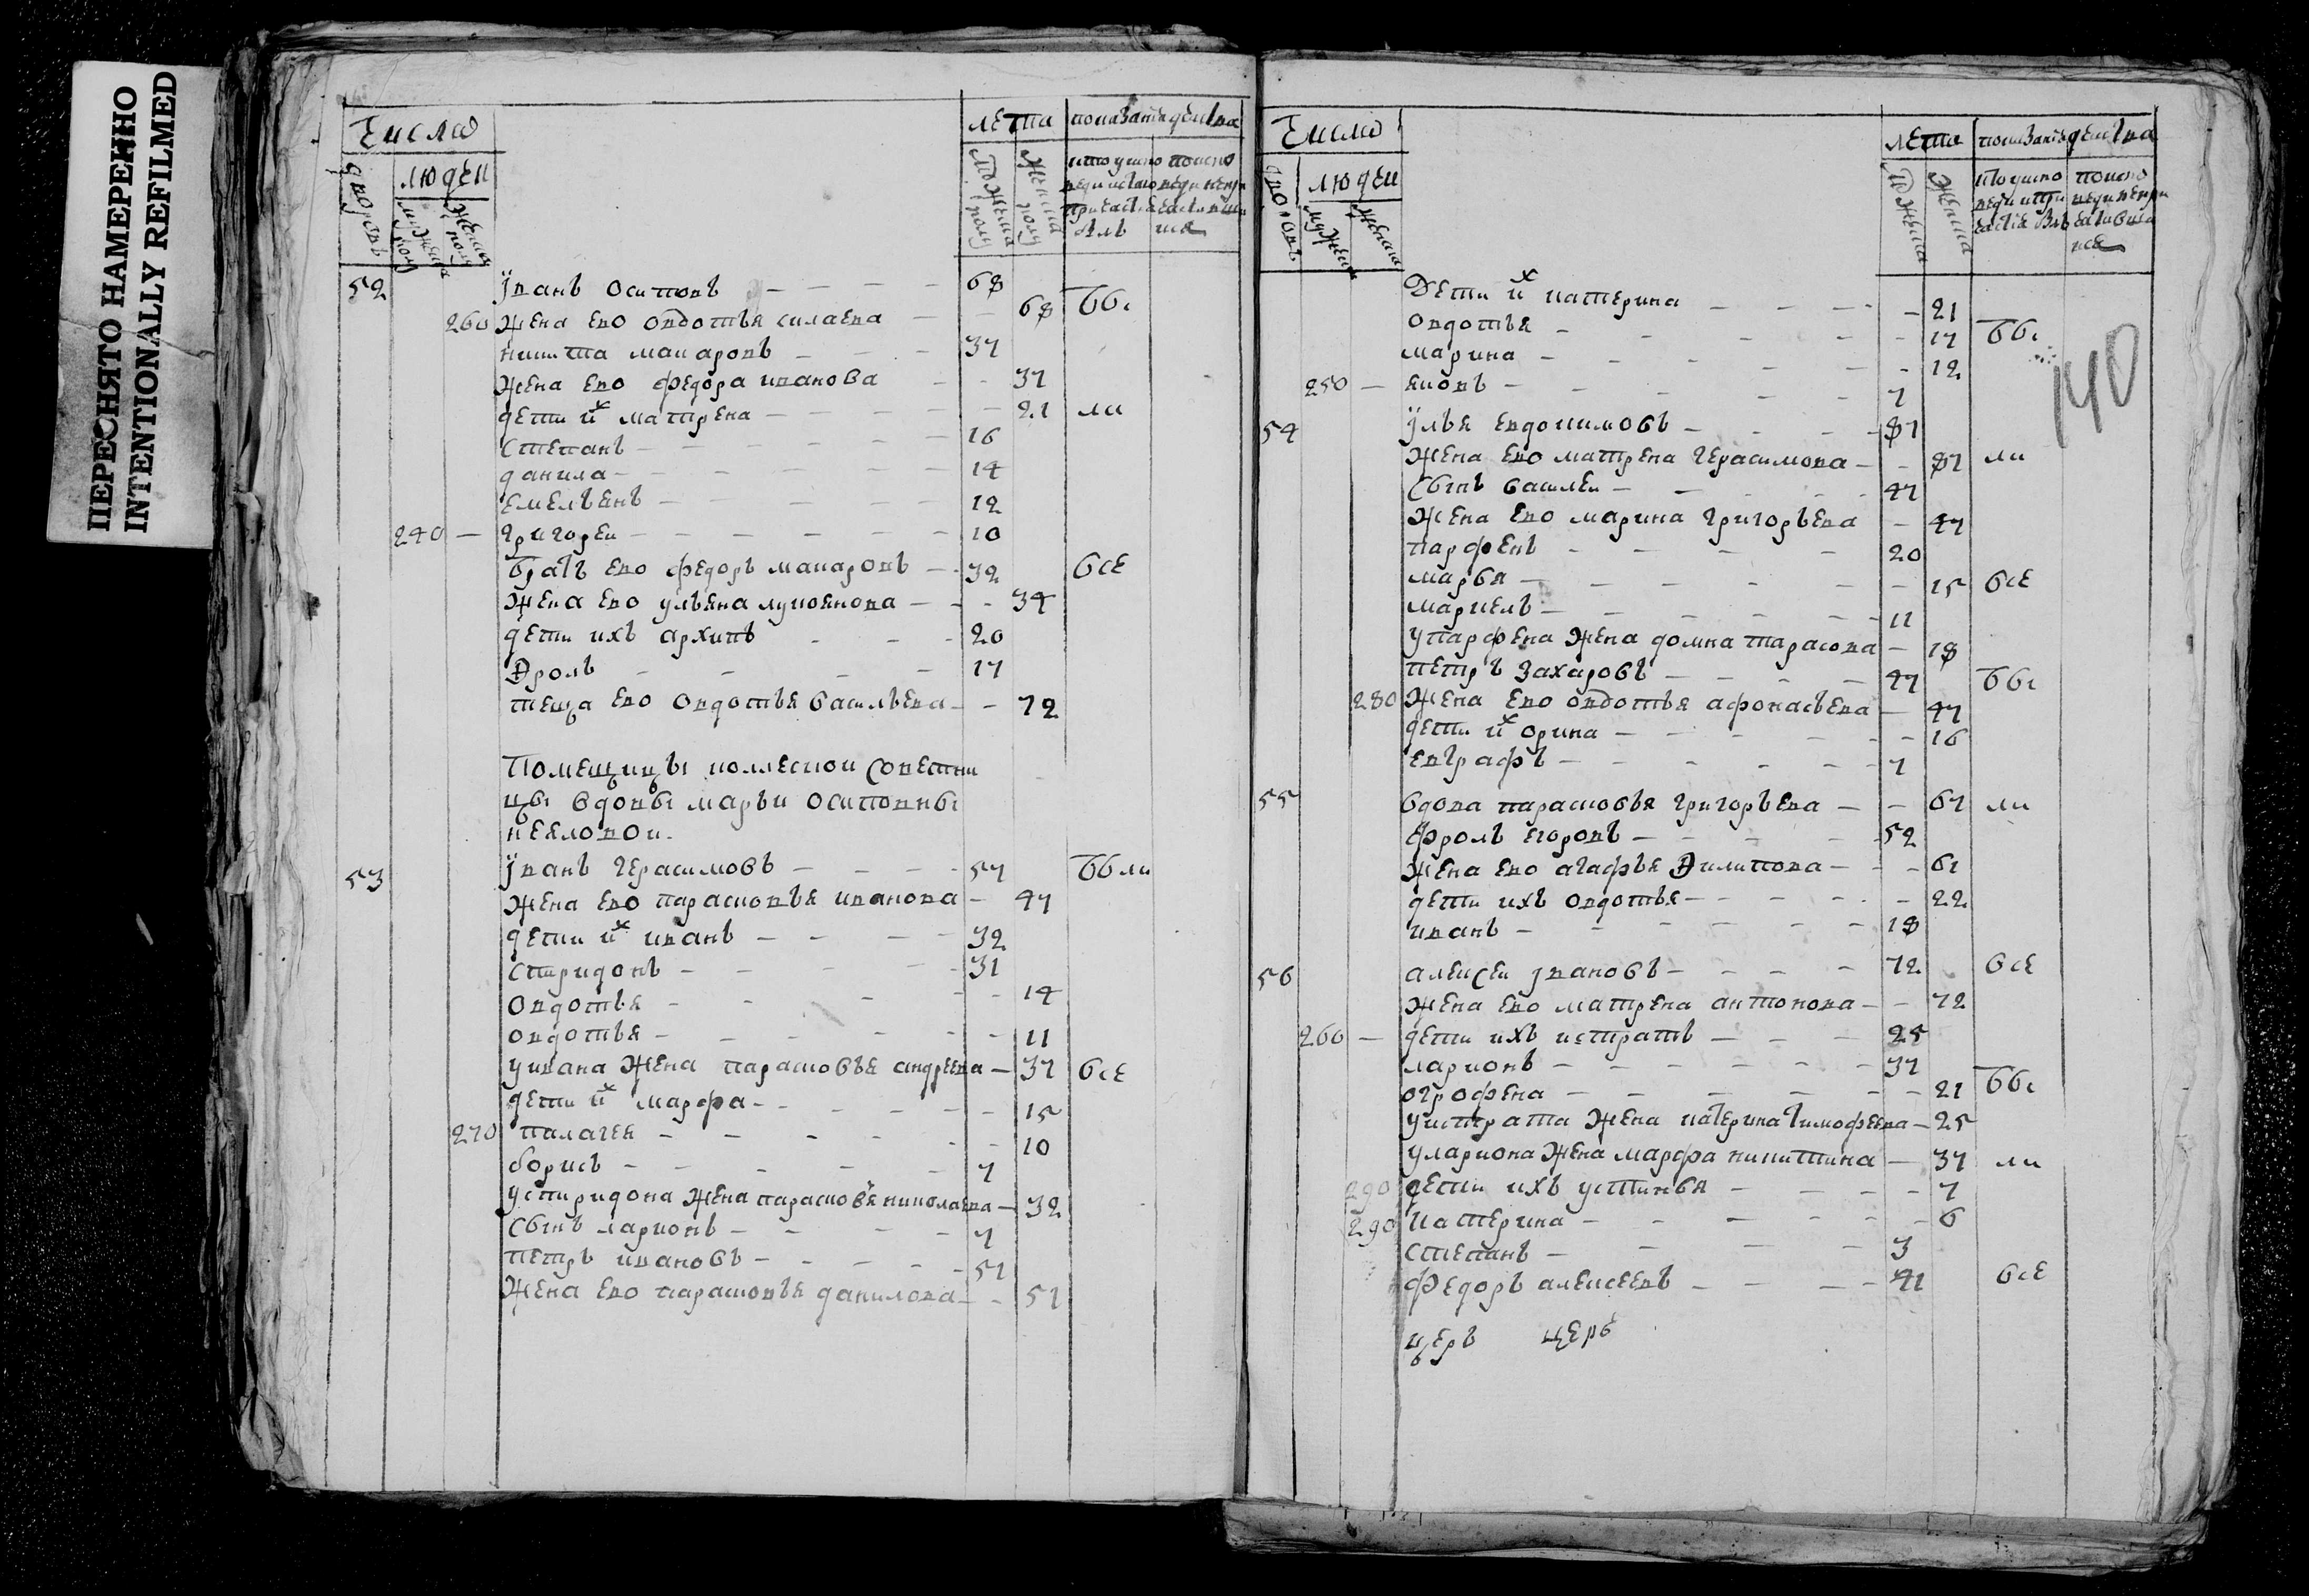 ПЕРЕСНЯТО НАМЕРЕННО
INTENTIONALLY REFILMED
Число
лета
показание действа
дворовъ
людей
мужеска полу
женска полу
мужеска полу
женска полу
52 Їванъ Осиповъ 68
260 жена ево овдотья силаева 68 бы
никита макаровъ 37
жена ево федора иванова 37
дети их матрена 21 ли
степанъ 16
данила 14
емельянъ 12
240 григореи 10
братъ ево федоръ макаровъ 32 все
жена ево ульяна лукоянова 34
дети ихъ архипъ 20
Фролъ 17
теща ево овдотья васильева 72
Помещицы коллескои советни
цы вдовы марьи осиповны
неяловои
53 Їванъ герасимовъ 57 были
жена ево парасковья иванова 47
дети их иванъ 32
спиридонъ 31
овдотья 14
овдотья 11
у ивана жена парасковья андреева 37 все
дети их марфа 15
270 палагея 10
борисъ 7
у спиридона жена парасковья николаева 32
сынъ ларионъ 7
петръ ивановъ 57
жена ево парасковья данилова 57
Число
лета
показание действа
дворовъ
людей
мужеска
женска
мужеска
женска
140
Дети их катерина 21
овдотья 17 бы
марина 12
250 яковъ 7
54 Їлья евдокимовъ 87
жена ево матрена герасимова 87 ли
сынъ василеи 47
жена ево марина григорьева 47
парфенъ 20
марья 15 все
маркелъ 11
у парфена жена домна тарасова 18
петръ захаровъ 47 бы
280 жена ево овдотья афонасьева 47
дети их орина 16
евграфъ 7
55 вдова парасковья григорьева 67 ли
фролъ егоровъ 52
жена ево агафья Филипова 61
дети ихъ овдотья 22
иванъ 18
56 алексеи Ївановъ 72 все
жена ево матрена антонова 72
260 дети ихъ истратъ 25
ларионъ 37
огрофена 21 бы
у истрата жена катерина тимофеева 25
у лариона жена марфа никитина 37 ли
290 дети ихъ устинья 7
290 катерина 6
степанъ 3
федоръ алексеевъ 41 все
церъ церъ